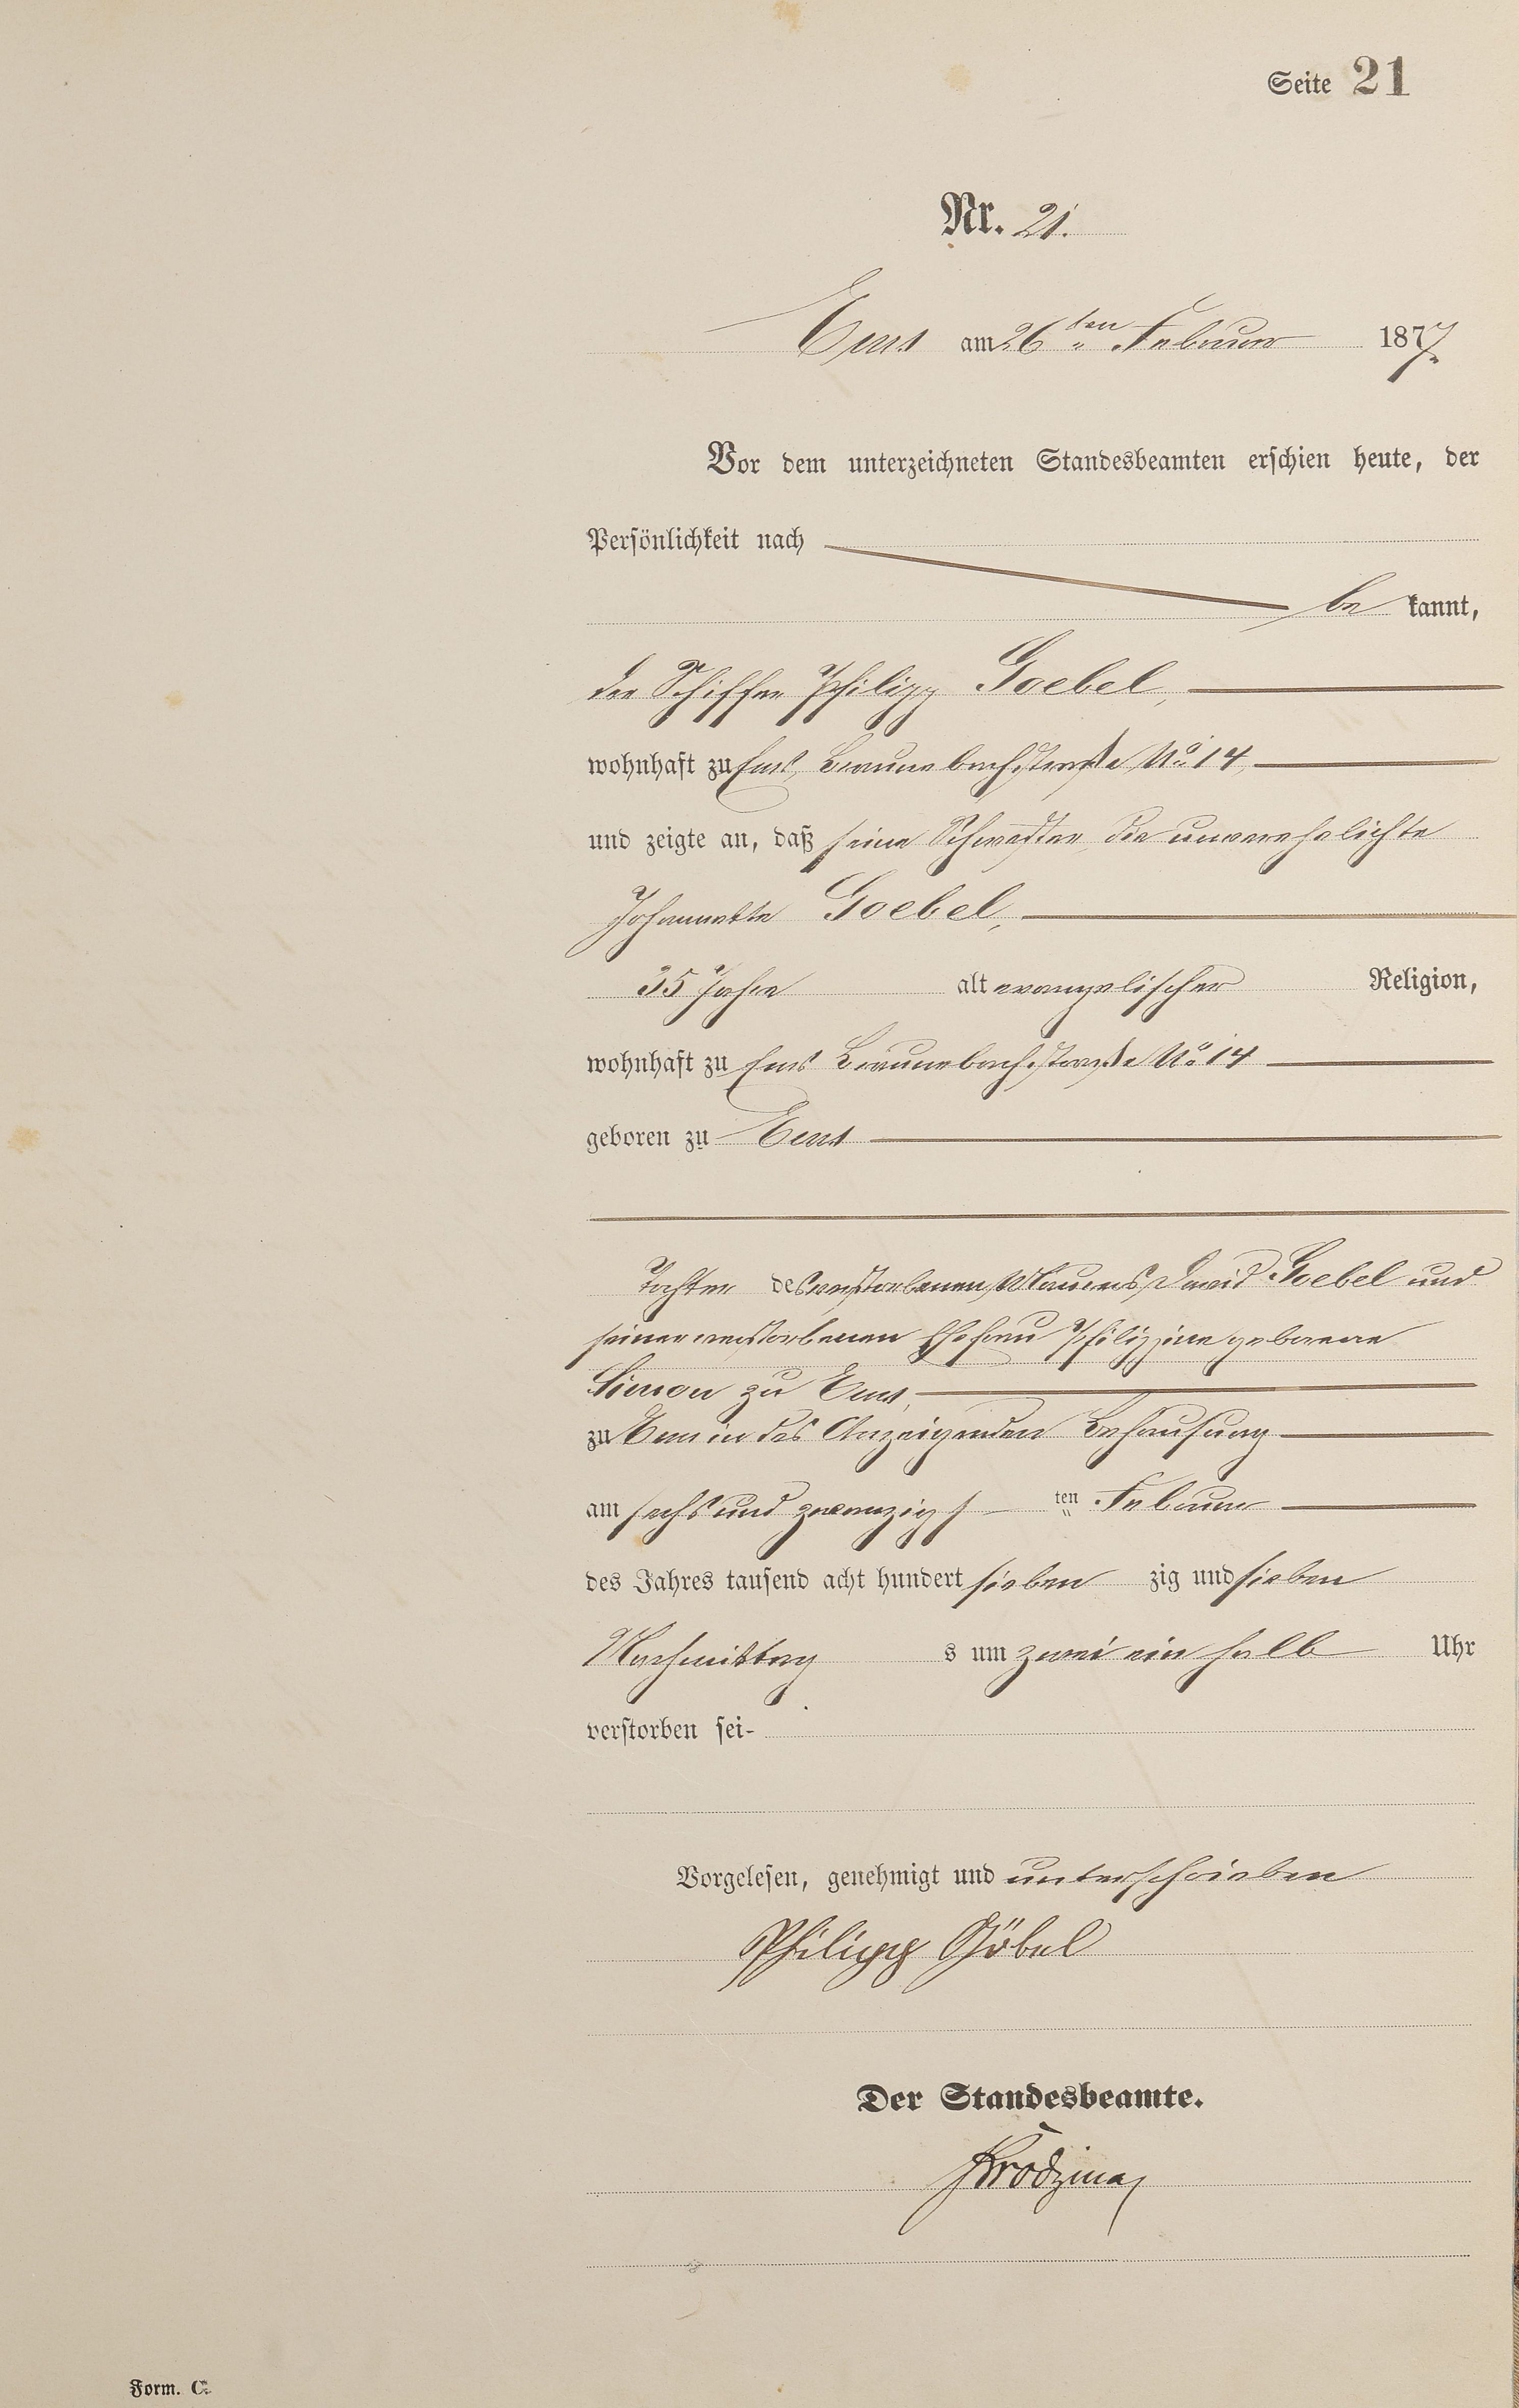 Seite 21
Nr. 21.
Ems am 26ten Februar 1877.
Vor dem unterzeichneten Standesbeamten erschien heute, der
Persönlichkeit nach
be kannt,
der Schiffer Philipp Goebel,
wohnhaft zu Ems, Braunebachstraße No 14,
und zeigte an, daß seine Schwester, die unverehelichte
Johannette Goebel,
35 Jahre alt evangelischer Religion,
wohnhaft zu Ems Braunebachstraße No 14
geboren zu Ems
Tochter des verstorbenen Maurers David Goebel und
seiner verstorbenen Ehefrau Philippine geborene
Simon zu Ems,
zu Ems in des Anzeigenden Behausung
am sechs und zwanzigsten Februar
des Jahres tausend acht hundert siebenzig und sieben
Nachmittags um zwei ein halb Uhr
verstorben sei-
Vorgelesen, genehmigt und unterschrieben
Philipp Göbel
Der Standesbeamte.
Form. C.